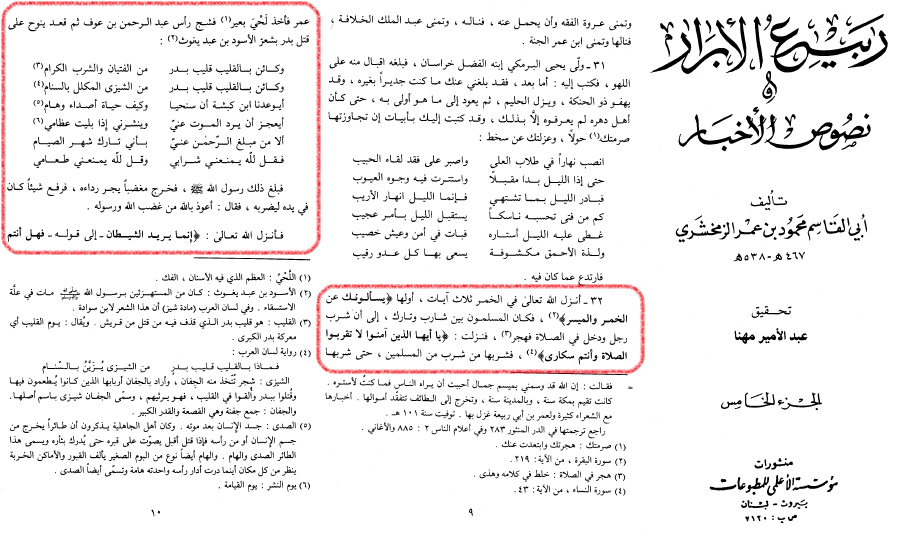 ربيع الأبرار
و
نصوص الأخبار
تأليف
أبي القاسم محمود بن عمر الزمخشري
٤٦٧هـ - ٥٣٨هـ
تحقيق
عبد الأمير مهنا
الجزء الخامس
منشورات
مؤسسة الأعلمي للمطبوعات
بيروت - لبنان
ص ب : ٧١٢٠
وتمنى عروة الفقه وأن يحمل عنه ، فناله ، وتمنى عبد الملك الخلافة ،
فنالها وتمنى ابن عمر الجنة .
٣١ - ولّى يحيى البرمكي إبنه الفضل خراسان ، فبلغه اقبال منه على
اللهو ، فكتب إليه : أما بعد ، فقد بلغني عنك ما كنت جديراً بغيره ، وقد
يهفو ذو الحنكة ، ويزل الحليم ، ثم يعود إلى ما هو أولى به ، حتى كأن
أهل دهره لم يعرفوه إلّا بذلك ، وقد كتبت إليك بأبيات إن تجاوزتها
صرمتك(١) حولًا ، وعزلتك عن سخط :
انصب نهاراً في طلاب العلى واصبر على فقد لقاء الحبيب
حتى إذا الليل بدا مقبلًا واستترت فيه وجوه العيوب
فبادر الليل بما تشتهي فإنما الليل انهار الأريب
كم من فتى تحسبه ناسكاً يستقبل الليل بأمر عجيب
غطى عليه الليل أستاره فبات في أمن وعيش خصيب
ولذة الأحمق مكشوفة يسعى بها كل عدو رقيب
فارتدع عما كان فيه .
٣٢ - أنزل الله تعالى في الخمر ثلاث آيات ، أولها ﴿يسألونك عن
الخمر والميسر﴾(٢) ، فكان المسلمون بين شارب وتارك ، إلى أن شرب
رجل ودخل في الصلاة فهجر(٣) ، فنزلت : ﴿يا أيها الذين آمنوا لا تقربوا
الصلاة وأنتم سكارى﴾(٤) ، فشربها من شرب من المسلمين ، حتى شربها
= فقالت : إن الله قد وسمني بميسم جمال أحببت أن يراه الناس فما كنت لأستره .
كانت تقيم بمكة سنة ، وبالمدينة سنة ، وتخرج إلى الطائف تتفقد أموالها . أخبارها
مع الشعراء كثيرة ولعمر بن أبي ربيعة غزل بها . توفيت سنة ١٠١ هـ .
راجع ترجمتها في الدر المنثور ٢٨٣ وفي أعلام الناس ٢ : ٨٨٥ والأغاني .
(١) صرمتك : هجرتك وابتعدت عنك .
(٢) سورة البقرة ، من الآية : ٢١٩ .
(٣) هجر في الصلاة : خلط في كلامه وهذى .
(٤) سورة النساء ، من الآية : ٤٣ .
٩
عمر فأخذ لَحْيَ بعير(١) فشج رأس عبد الرحمن بن عوف ثم قعد ينوح على
قتل بدر بشعر الأسود بن عبد يغوث(٢) :
وكائن بالقليب قليب بدر من الفتيان والشرب الكرام(٣)
وكائن بالقليب قليب بدر من الشيزى المكلل بالسنام(٤)
أيوعدنا ابن كبشة أن سنحيا وكيف حياة أصداء وهام(٥)
أيعجز أن يرد الموت عنيّ وينشرني إذا بليت عظامي(٦)
ألا من مبلغ الرّحمن عنيّ بأني تارك شهر الصيام
فقل لله يمنعني شرابي وقل لله يمنعني طعامي
فبلغ ذلك رسول الله ﷺ ، فخرج مغضباً يجر رداءه ، فرفع شيئاً كان
في يده ليضربه ، فقال : أعوذ بالله من غضب الله ورسوله .
فأنزل الله تعالى : ﴿إنما يريد الشيطان - إلى قوله - فهل أنتم
(١) اللَّحْيُ : العظم الذي فيه الأسنان ، الفك .
(٢) الأسود بن عبد يغوث : كان من المستهزئين برسول الله ﷺ مات في علّة
الاستسقاء . وفي لسان العرب (مادة شيز) أن هذا الشعر لابن سوادة .
(٣) القليب : هو قليب بدر الـذي قذف فيه من قتل من قريش . ويُقال : يوم القليب أي
معركة بدر الكبرى .
(٤) رواية لسان العرب :
فماذا بالقليب قليب بدر من الشيزى يُزَيَّنُ بالسَّنام
الشيزى : شجر تُتّخذ منه الجفان ، وأراد بالجفان أربابها الذين كانوا يُطعمون فيها
وقُتلوا ببدر وألقوا في القليب ، فهو يرثيهم ، وسمّى الجفان شيزى باسم أصلها .
والجفان : جمع جفنة وهي القصعة والقدر الكبير .
(٥) الصدى : جسد الإنسان بعد موته . وكان أهل الجاهلية يذكرون أن طائراً يخرج من
جسم الإنسان أو من رأسه فإذا قتل أقبل يصوّت على قبره حتى يُدرك بثأره ويسمى هذا
الطائر الصدى والهام . والهام أيضاً نوع من البوم الصغير يألف القبور والأماكن الخربة
ينظر من كل مكان أينما درت أدار رأسه واحدته هامة وتسمّى أيضاً الصدى .
(٦) يوم النشر : يوم القيامة .
١٠